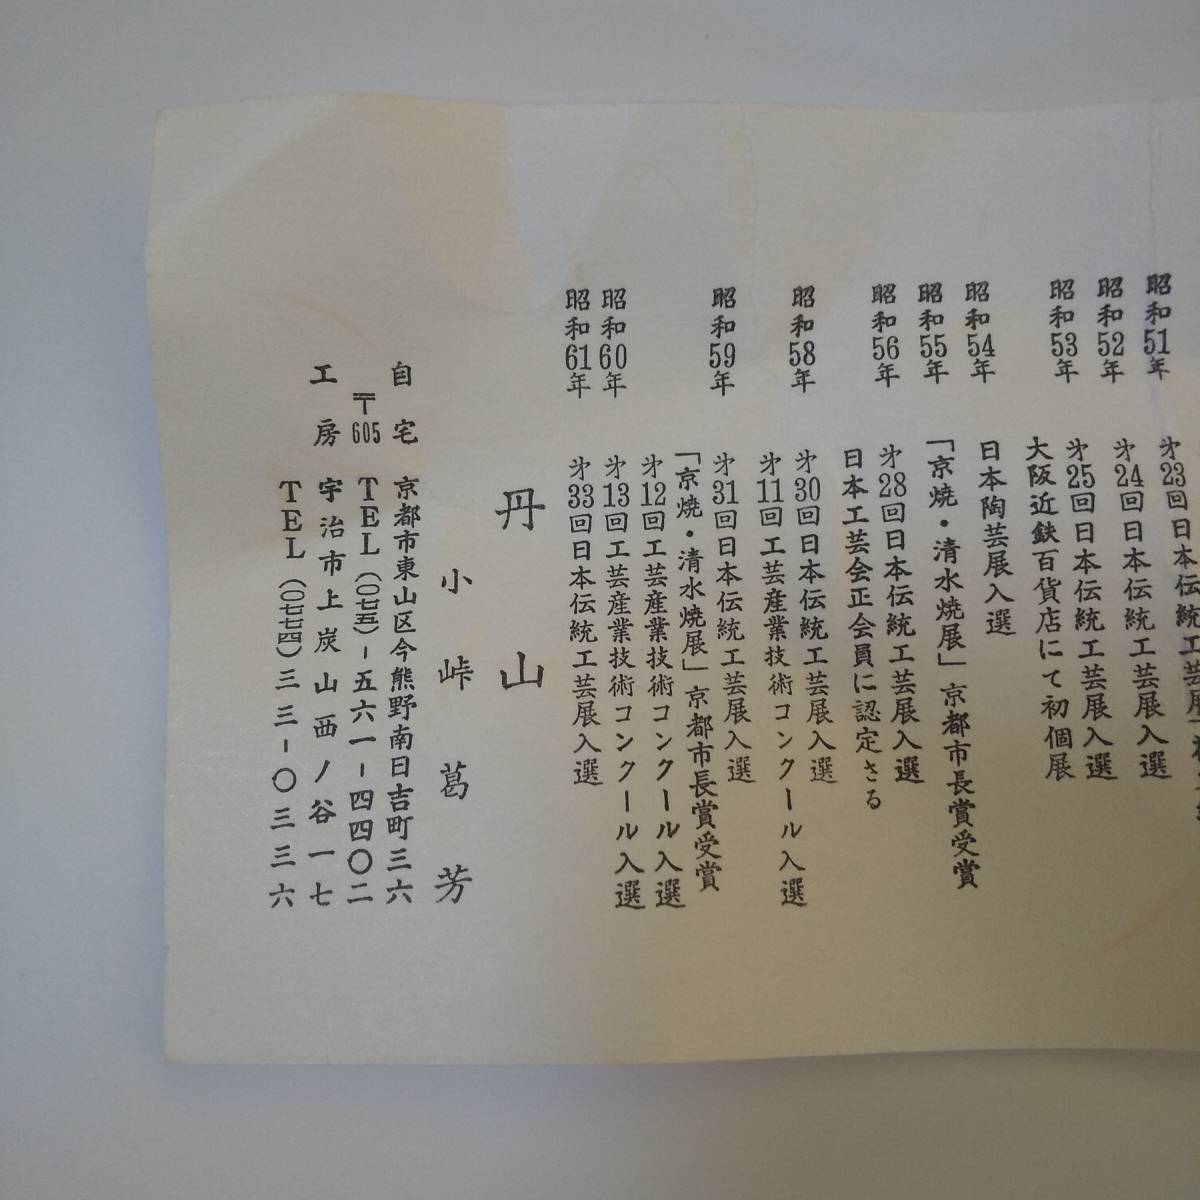 昭和51年 第23回日本伝統工芸展
昭和52年 第24回日本伝統工芸展入選
昭和53年 第25回日本伝統工芸展入選
大阪近鉄百貨店にて初個展
昭和54年 日本陶芸展入選
昭和55年 「京焼・清水焼展」京都市長賞受賞
昭和56年 第28回日本伝統工芸展入選
日本工芸会正会員に認定さる
昭和58年 第30回日本伝統工芸展入選
第11回工芸産業技術コンクール入選
昭和59年 第31回日本伝統工芸展入選
「京焼・清水焼展」京都市長賞受賞
第12回工芸産業技術コンクール入選
昭和60年 第13回工芸産業技術コンクール入選
昭和61年 第33回日本伝統工芸展入選
丹山
小峠葛芳
自宅 京都市東山区今熊野南日吉町三六
〒605 TEL(〇七五)-五六一-四四〇二
工房 宇治市上炭山西ノ谷一七
TEL(〇七七四)三三-〇三三六